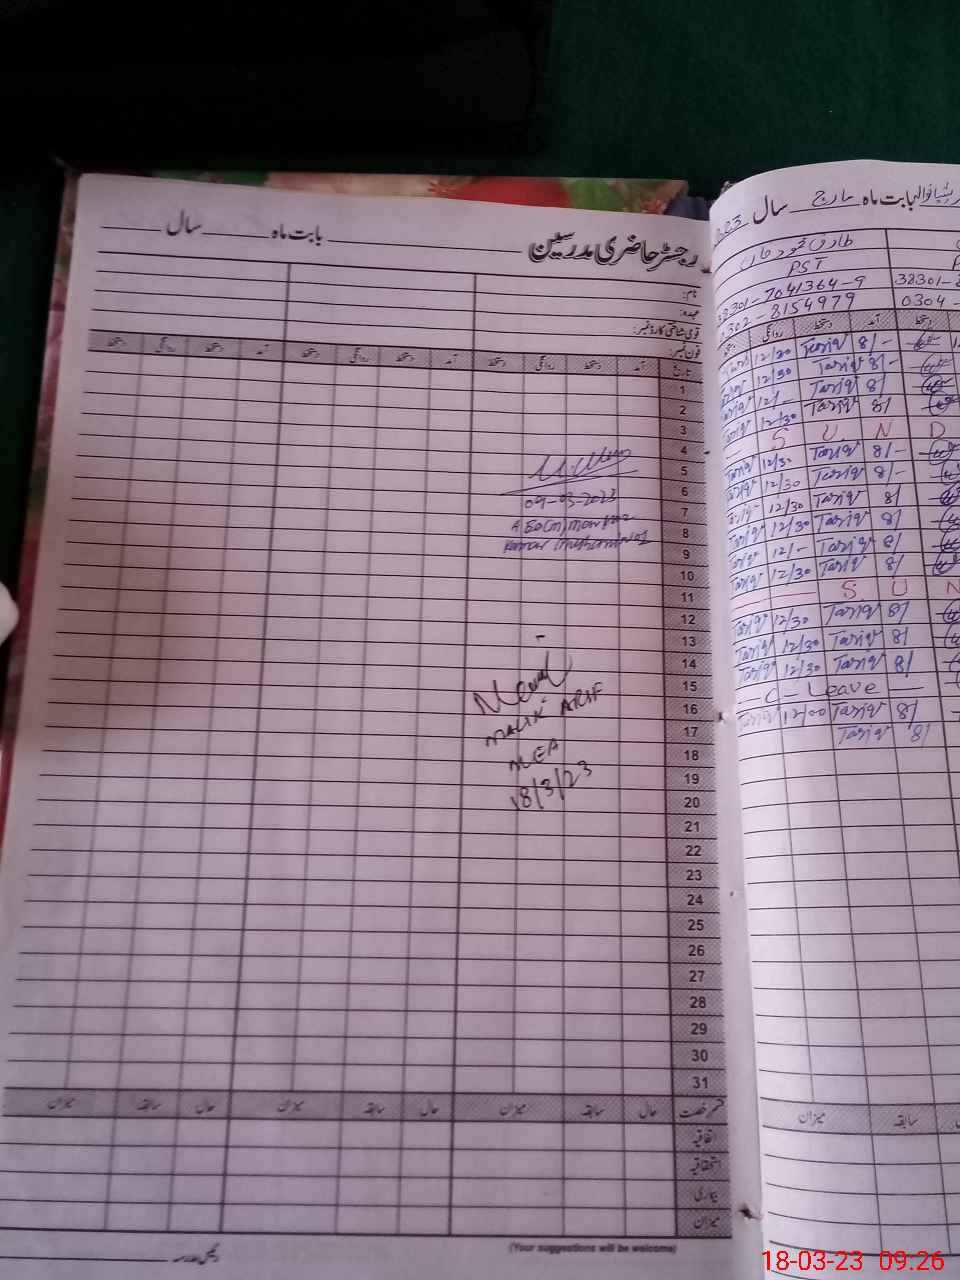 رجسٹر حاضری مدرسین ______ بابت ماہ ______ سال ______
نام:
عہدہ:
قومی شناختی کارڈ نمبر:
فون نمبر:
تاریخ آمد دستخط روانگی دستخط آمد دستخط روانگی دستخط آمد دستخط روانگی دستخط
1
2
3
4
5
6
7
8
9
10
11
12
13
14
15
16
17
18
19
20
21
22
23
24
25
26
27
28
29
30
31
09-03-2023
MALIK ARIF
MEA
18/3/23
قسم رخصت حال سابقہ میزان حال سابقہ میزان حال سابقہ میزان
اتفاقیہ
استحقاقیہ
بیماری
میزان
رئیس مدرسہ
(Your suggestions will be welcome)
بابت ماہ مارچ سال
طارق محمود
PST
38301-7041364-9 38301-
0302-8154979 0304-
دستخط آمد دستخط روانگی
12/30 Tariq 8/-
12/30 Tariq 8/-
12/- Tariq 8/
12/30 Tariq 8/
S U N D
Tariq 12/30 Tariq 8/-
Tariq 12/30 Tariq 8/-
Tariq 12/30 Tariq 8/
Tariq 12/30 Tariq 8/
Tariq 12/- Tariq 8/
Tariq 12/30 Tariq 8/
S U N
Tariq 12/30 Tariq 8/
Tariq 12/30 Tariq 8/
Tariq 12/30 Tariq 8/
C - Leave
Tariq 12/00 Tariq 8/
Tariq 8/
سابقہ میزان
18-03-23 09:26